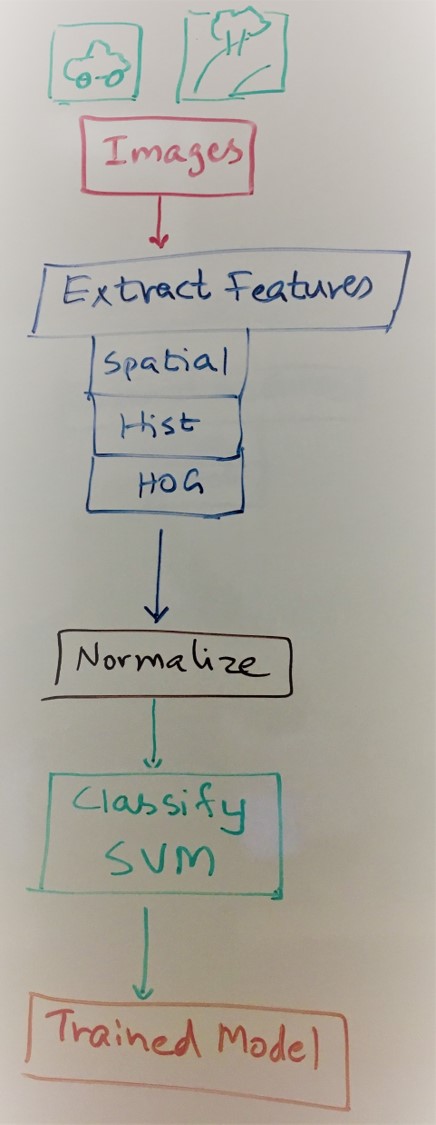 Images
Extract Features
Spatial
Hist
HOG
Normalize
Classify
SVM
Trained Model